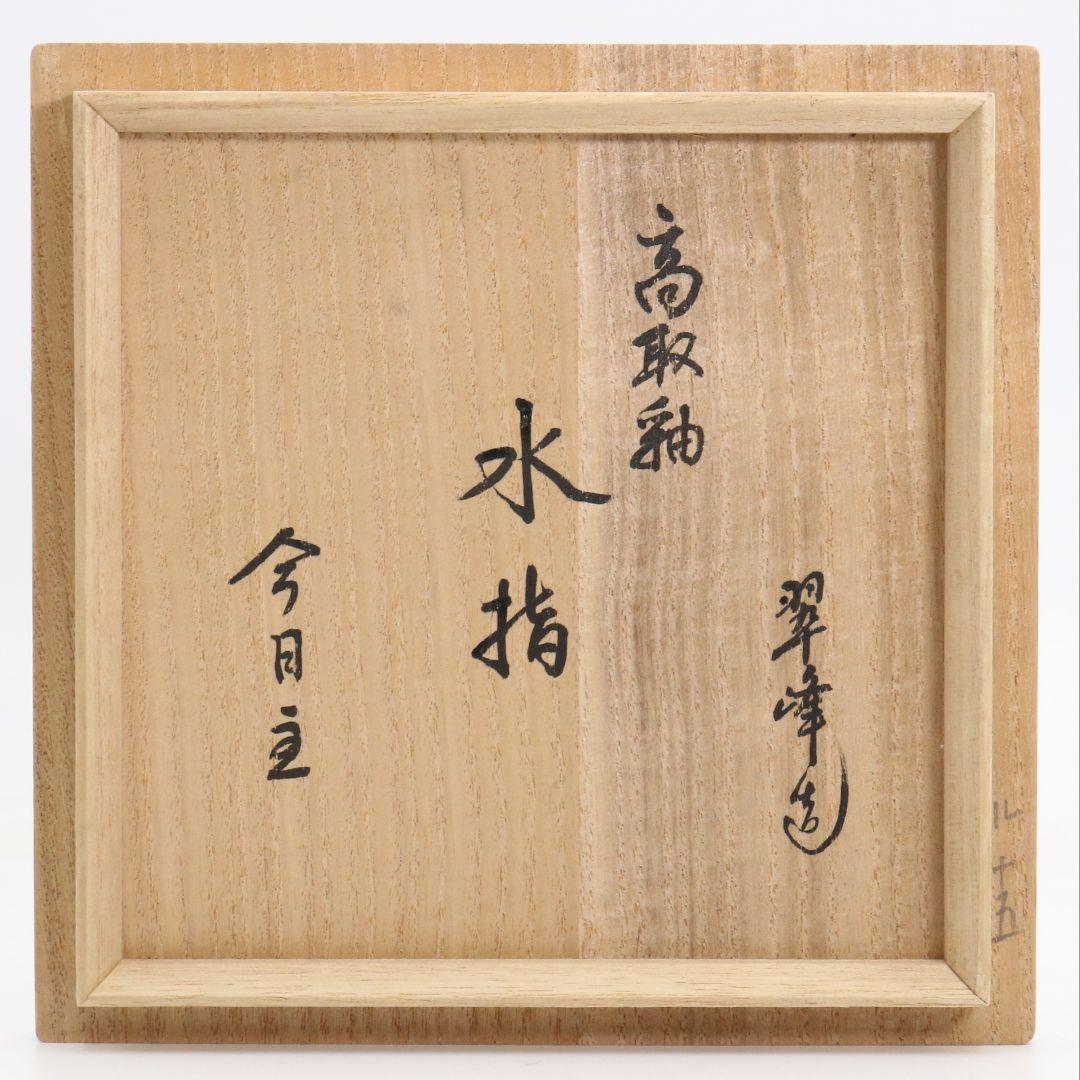 翠峰造
高取釉
水指
今日主
ル十五